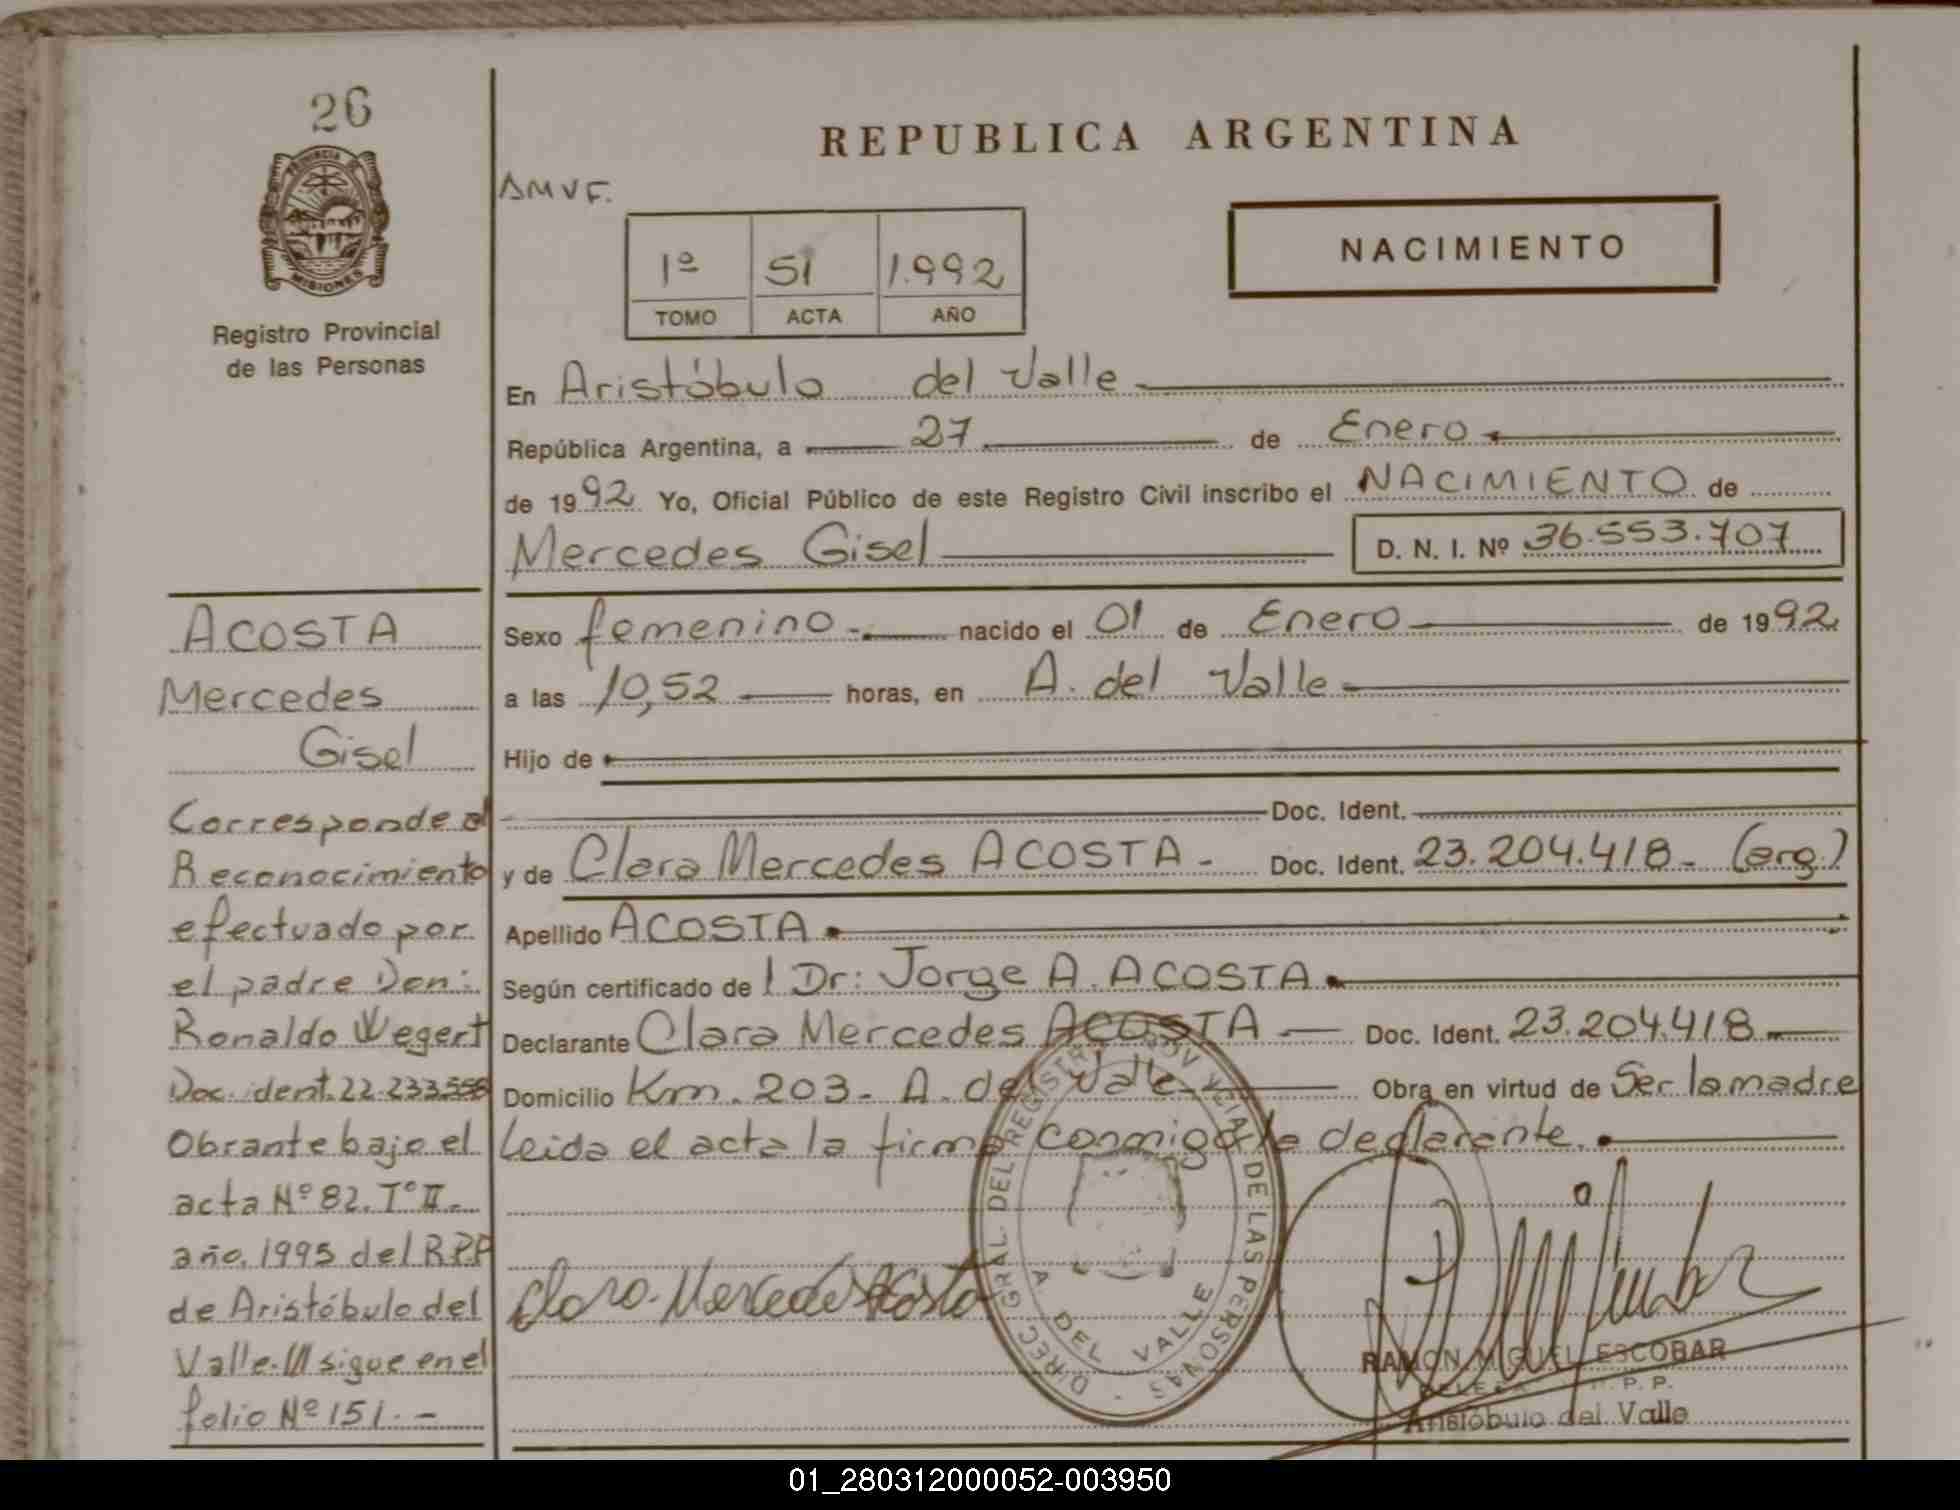 26
PROVINCIA DE
MISIONES
Registro Provincial
de las Personas
REPUBLICA ARGENTINA
AMVF.
1º 51 1.992
TOMO ACTA AÑO
NACIMIENTO
En Aristóbulo del Valle
República Argentina, a 27 de Enero
de 1992 Yo, Oficial Público de este Registro Civil inscribo el NACIMIENTO de
Mercedes Gisel D. N. I. Nº 36.553.707
Sexo femenino.- nacido el 01 de Enero de 1992
a las 10,52 horas, en A. del Valle
Hijo de
Doc. Ident.
y de Clara Mercedes ACOSTA - Doc. Ident. 23.204.418- (arg.)
Apellido ACOSTA
Según certificado de l Dr: Jorge A. ACOSTA
Declarante Clara Mercedes ACOSTA Doc. Ident. 23.204.418
Domicilio Km. 203- A. del Valle Obra en virtud de Ser la madre
Leida el acta la firma conmigo la declarante.
ACOSTA
Mercedes
Gisel
Corresponde al
Reconocimiento
efectuado por
el padre Don:
Ronaldo Wegert
Doc. ident. 22.233.556
Obrante bajo el
acta Nº 82. Tº II.-
año. 1995 del R.P.P
de Aristóbulo del
Valle./// sigue en el
folio Nº 151.-
Clara Mercedes Acosta
DIREC. GRAL. DEL REGISTRO PROVINCIAL DE LAS PERSONAS
A DEL VALLE
RAMON MIGUEL ESCOBAR
R. P. P.
Aristóbulo del Valle
01_280312000052-003950